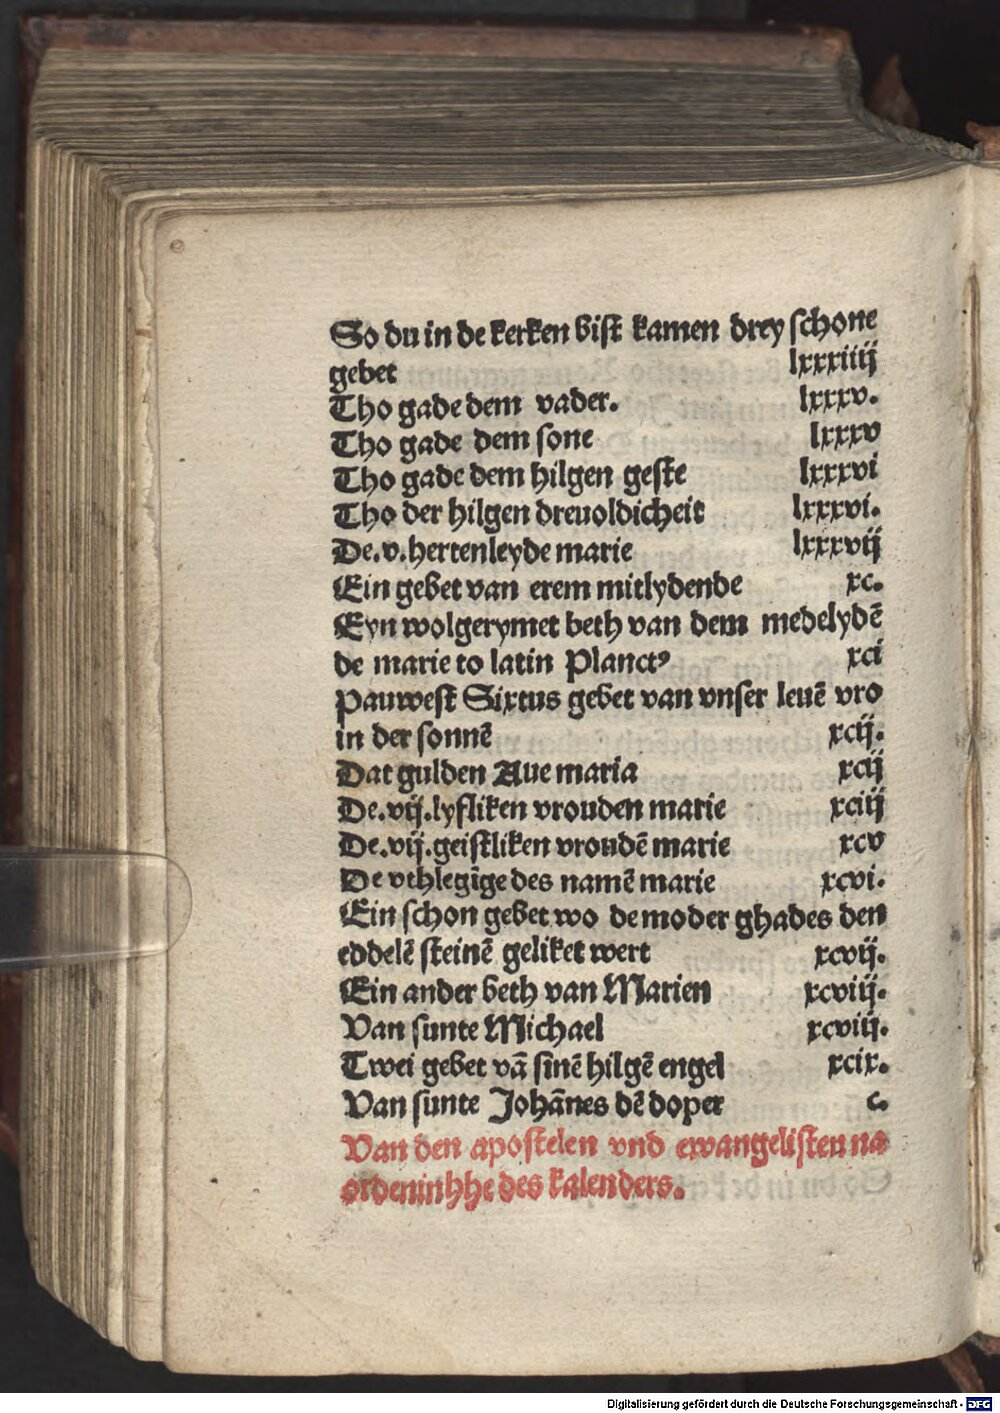 So du in de kerken bist kamen drey schone
gebet lxxxiiij
Tho gade dem vader. lxxxv.
Tho gade dem sone lxxxv
Tho gade dem hilgen geste lxxxvi
Tho der hilgen dreuoldicheit lxxxvi.
De.v.hertenleyde marie lxxxvij
Ein gebet van erem mitlydende xc.
Eyn wolgerymet beth van dem medelydē
de marie to latin Planctꝰ xci
Pauwest Sixtus gebet van vnser leuē vro
in der sonnē xcij.
Dat gulden Aue maria xcij
De.vij.lyfliken vrouden marie xciij
De.vij.geistliken vroudē marie xcv
De vthlegīge des namē marie xcvi.
Ein schon gebet wo de moder ghades den
eddelē steinē geliket wert xcvij.
Ein ander beth van Marien xcviij.
Van sunte Michael xcviij.
Twei gebet vā sinē hilgē engel xcix.
Van sunte Johānes dē doper c.
Van den apostelen vnd ewangelisten na
ordeninhhe des kalenders.
Digitalisierung gefördert durch die Deutsche Forschungsgemeinschaft - DFG